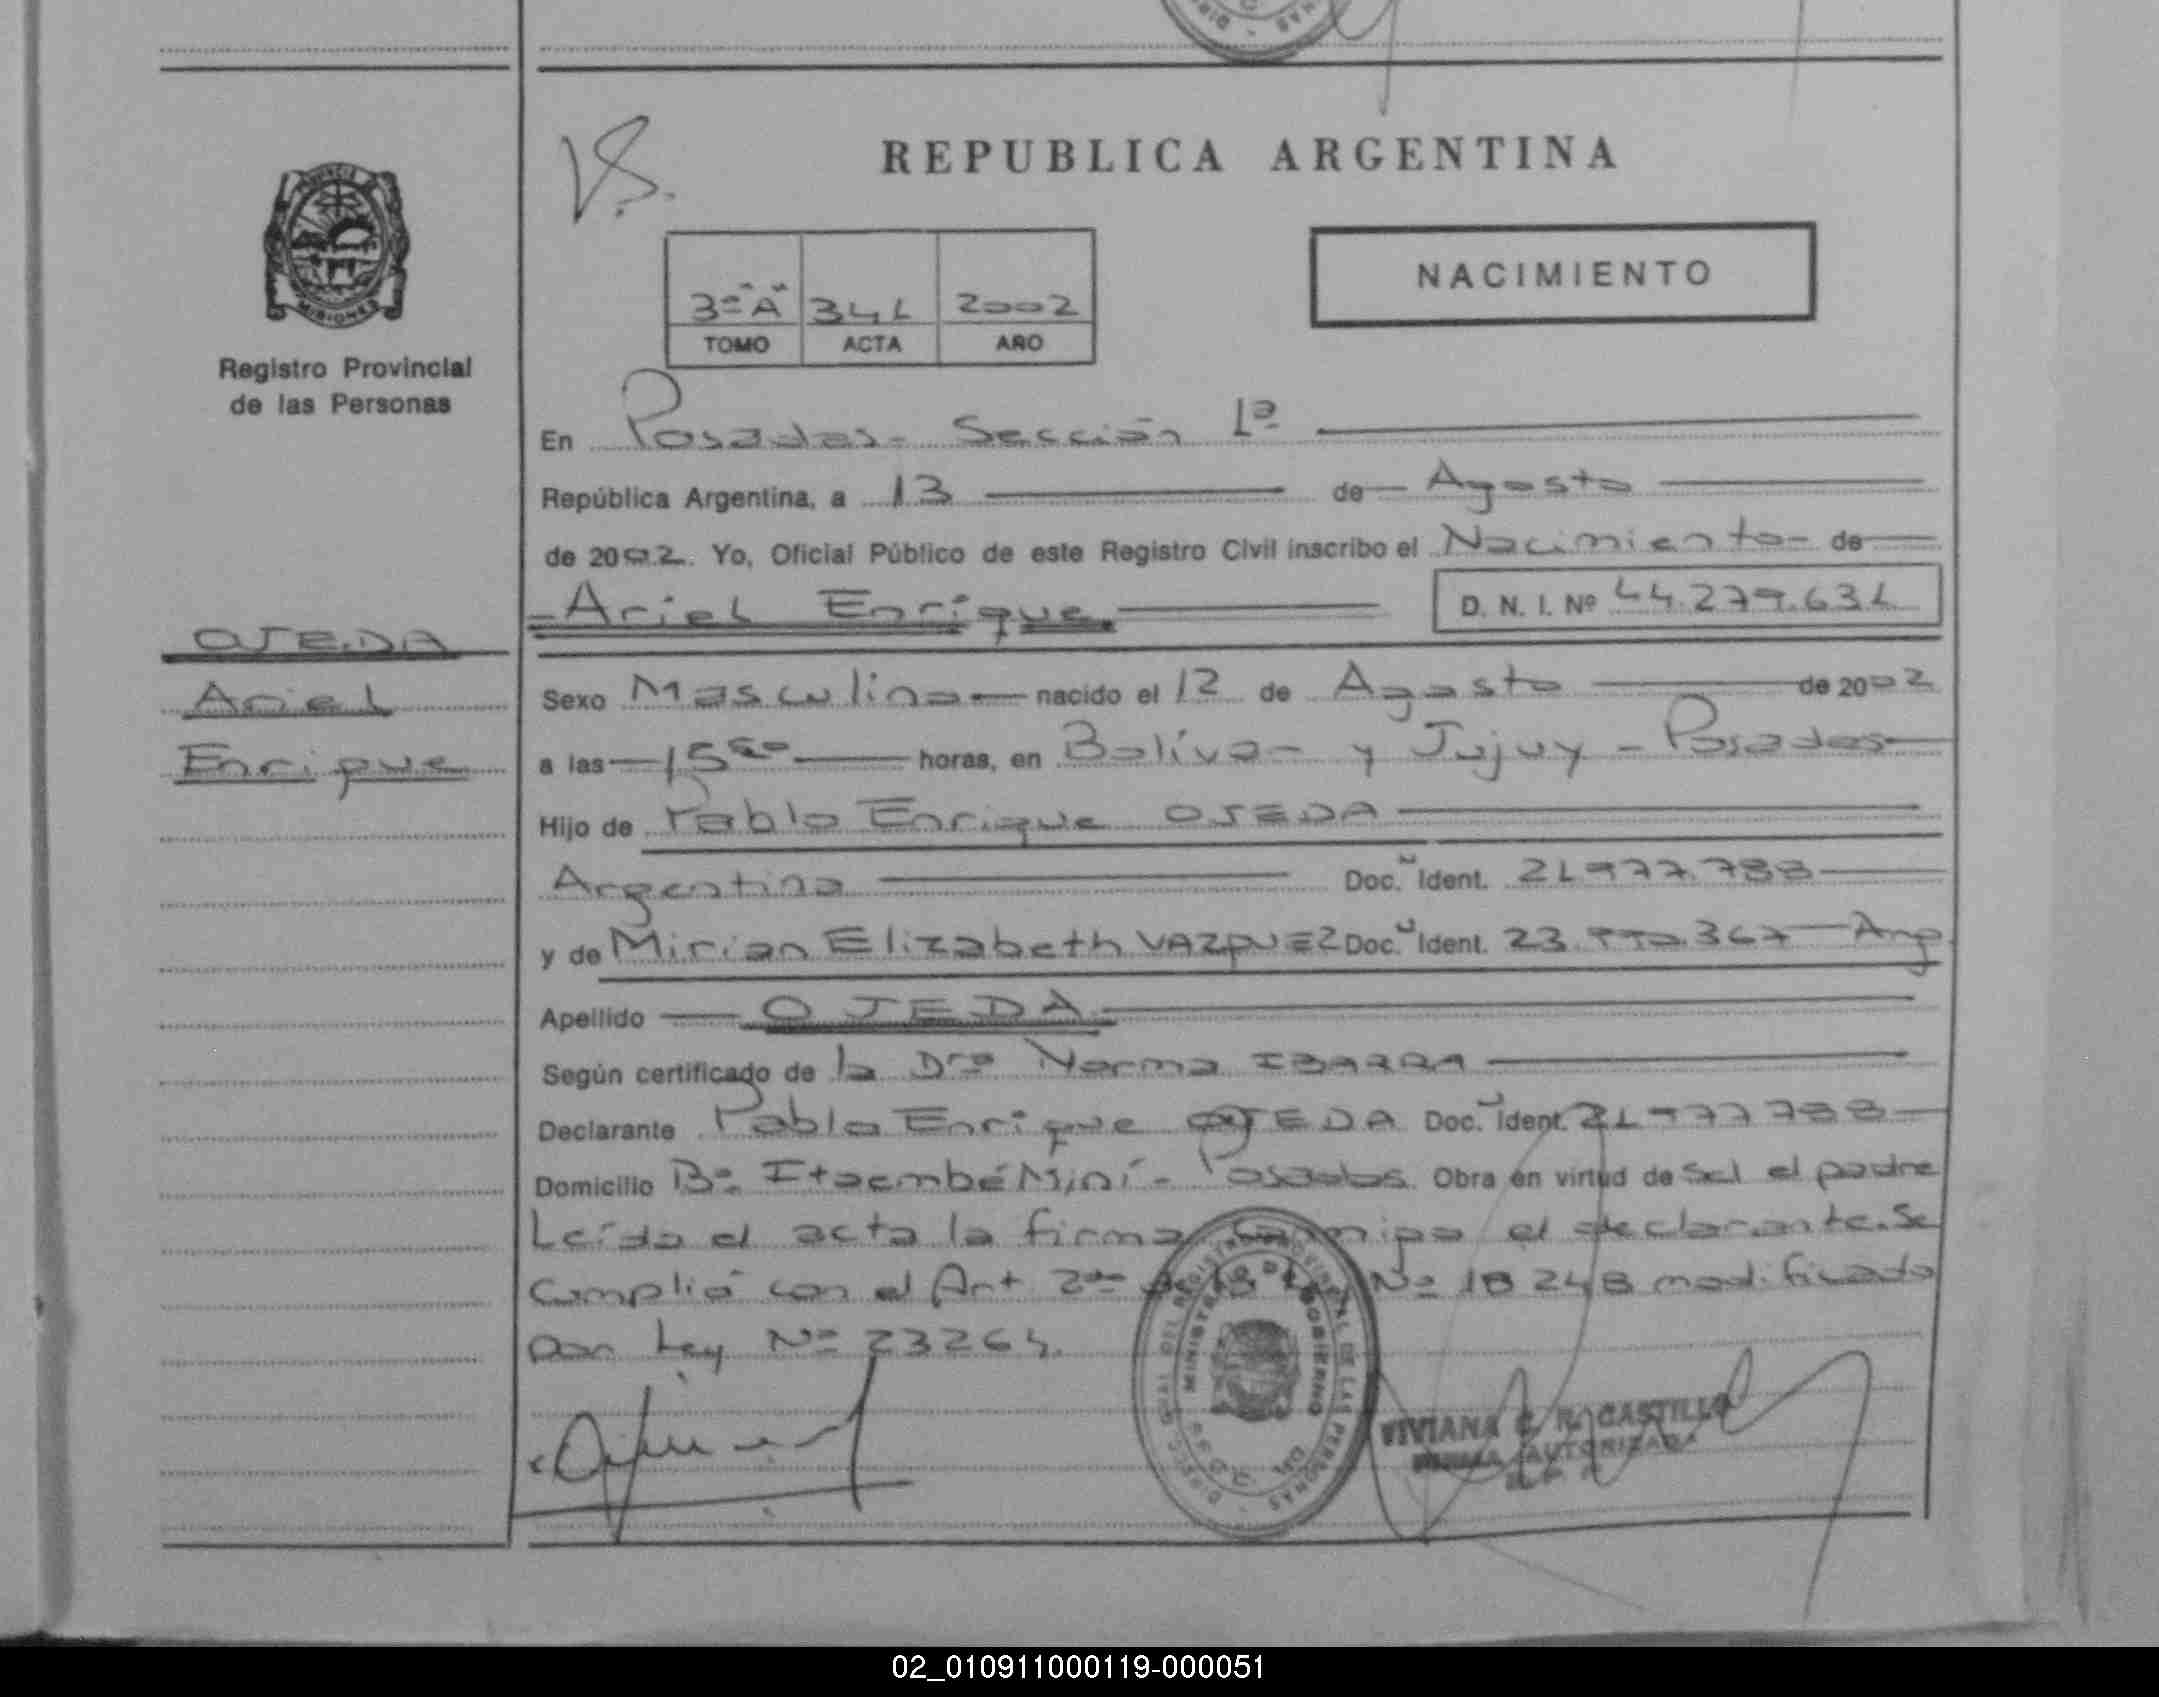 REPUBLICA ARGENTINA
PROVINCIA
MISIONES
Registro Provincial
de las Personas
NACIMIENTO
3º "A" 341 2002
TOMO ACTA AÑO
En Posadas - Sección 1ª
República Argentina, a 13 de Agosto
de 2002. Yo, Oficial Público de este Registro Civil inscribo el Nacimiento de
Ariel Enrique
D. N. I. Nº 44.279.631
OJEDA
Ariel
Enrique
Sexo Masculino nacido el 12 de Agosto de 2002
a las 15 horas, en Bolívar y Jujuy - Posadas
Hijo de Pablo Enrique OJEDA
Argentina Doc. Ident. 21977.788
y de Mirian Elizabeth VAZQUEZ Doc. Ident. 23.990.367 Arg
Apellido OJEDA
Según certificado de la Dra Norma IBARRA
Declarante Pablo Enrique OJEDA Doc. Ident. 21977788
Domicilio Bº Itaembé Miní - Posadas. Obra en virtud de sel el padre
Leída el acta la firma conmigo el declarante. Se
Cumplió con el Art 2do de la Ley Nº 18248 modificado
por Ley Nº 23264.
MINISTERIO DE GOBIERNO
VIVIANA C. R. CASTILLO
FIRMA AUTORIZADA
02_010911000119-000051